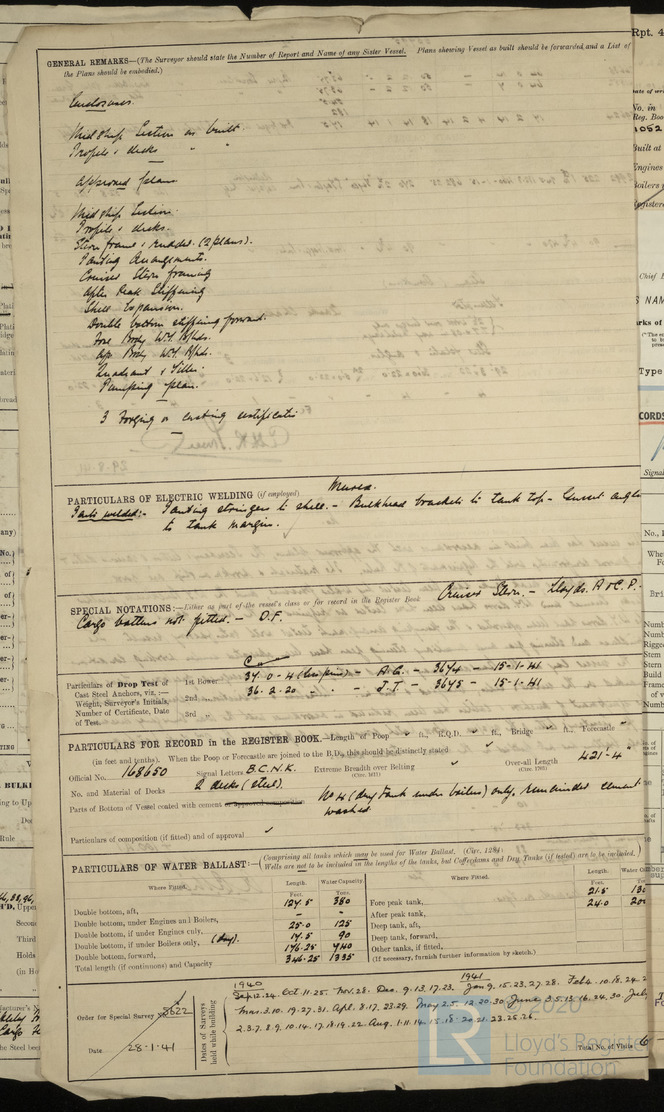 Rpt. 4
GENERAL REMARKS—(The Surveyor should state the Number of Report and Name of any Sister Vessel. Plans shewing Vessel as built should be forwarded and a List of
the Plans should be embodied.)
Enclosures.
Midship Section as built.
Profile & decks " "
Approved plans
Midship Section.
Profile & decks.
Stern frame & rudder. (2 plans).
Panting Arrangements.
Cruiser Stern framing
After Peak Stiffening
Shell Expansion.
Double bottom stiffening forward.
Fore Body W.T. Blkds.
Aft Body W.T. Blkds.
Quadrant & Tiller.
Pumping plan.
3 Forging or casting certificates
PARTICULARS OF ELECTRIC WELDING (if employed)
Parts welded:- Panting stringers to shell. - Bulkhead brackets to tank top - Gusset angles
to tank margin.
SPECIAL NOTATIONS:—Either as part of the vessel's class or for record in the Register Book Cruiser Stern. - Lloyds. A & C. P.-
Cargo battens not fitted. - D.F.
Particulars of Drop Test of
Cast Steel Anchors, viz.:—
Weight, Surveyor's Initials,
Number of Certificate, Date
of Test.
1st Bower 37.0.4 - A.G. - 3674 - 15-1-41
2nd " 36.2.20 " - J.T. - 3675 - 15-1-41
3rd "
PARTICULARS FOR RECORD in the REGISTER BOOK.—Length of Poop ft., R.Q.D. ft., Bridge ft., Forecastle
(in feet and tenths). When the Poop or Forecastle are joined to the B.D., this should be distinctly stated
Official No. 168650 Signal Letters B.C.N.K. Extreme Breadth over Belting (Circ. 1611) Over-all Length (Circ. 1703) 421-4
No. and Material of Decks 2 decks (steel)
Parts of Bottom of Vessel coated with cement or approved composition No 4 (dry tank under boilers) only, remainder cement
washed.
Particulars of composition (if fitted) and of approval
PARTICULARS OF WATER BALLAST:—(Comprising all tanks which may be used for Water Ballast. (Circ. 1284)
Wells are not to be included in the lengths of the tanks, but Cofferdams and Dry Tanks (if tested) are to be included.)
Where Fitted. Length. Feet. Water Capacity. Tons.
Double bottom, aft, 127.5 380
Double bottom, under Engines and Boilers, - -
Double bottom, if under Engines only, 25.0 125
Double bottom, if under Boilers only, (dry). 17.5 90
Double bottom, forward, 176.25 740
Total length (if continuous) and Capacity 346.25 1335
Where Fitted. Length. Feet.
Fore peak tank, 21.5
After peak tank, 24.0
Deep tank, aft,
Deep tank, forward,
Other tanks, if fitted,
(If necessary, furnish further information by sketch.)
Order for Special Survey No. 8622
Date 28-1-41
Dates of Surveys held while building
1940 1941
Sep. 12.24. Oct. 11.25. Nov. 28. Dec. 9.13.17.23. Jan 9.15.23.27.28. Feb 4.10.18.24.
Mar. 3.10.19.27.31. Apl. 8.17.23.29. May 2.5.12.20.30. June 3.5.13.16.24.30 July
2.3.7.8.9.10.14.17.18.19.22. Aug. 1.11.14.15.18.20.21.23.25.26.
Total No. of Visits
© 2020
Lloyd's Register
Foundation